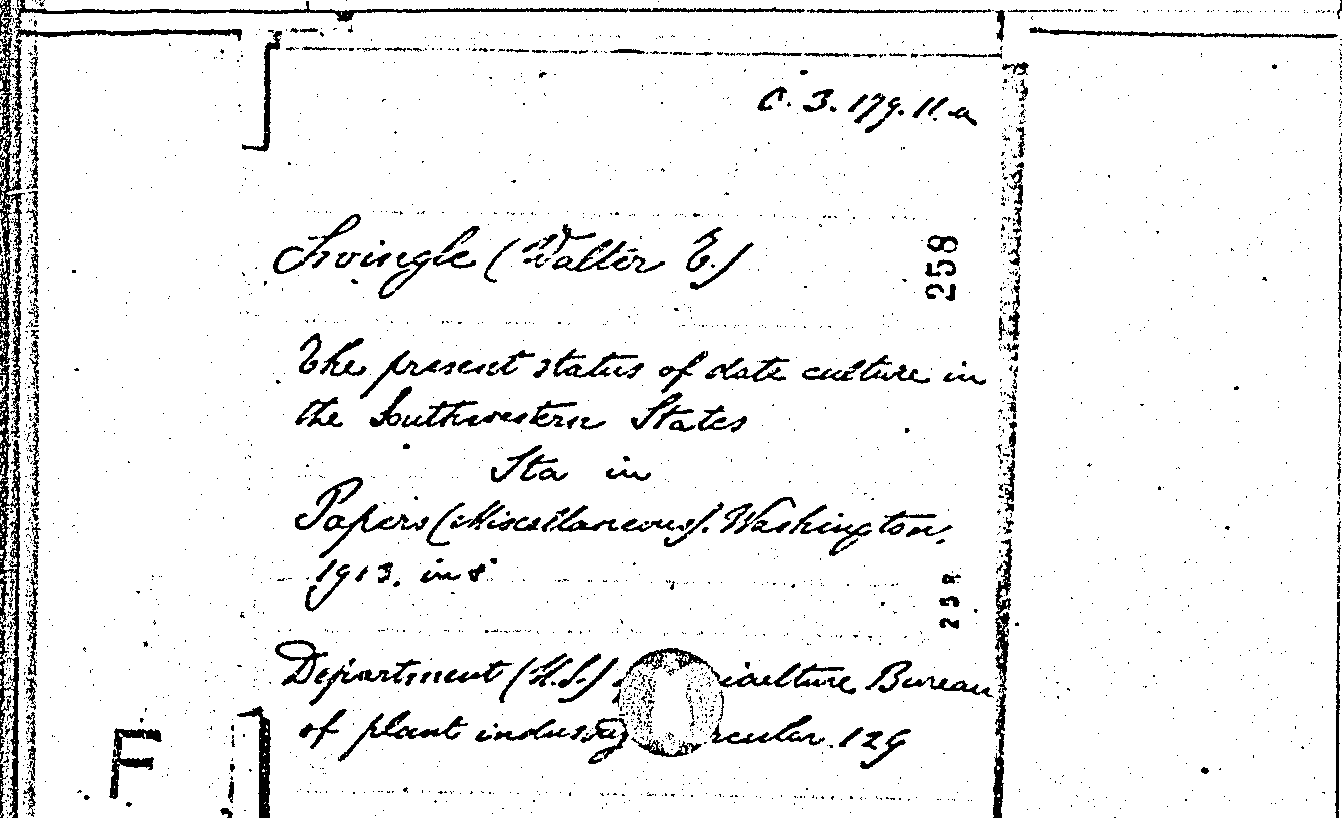 C. 3. 179. 11. a
Swingle (Walter T.)
258
The present status of date culture in
the Southwestern States
Sta in
Papers (Miscellaneous). Washington,
1913. in 8°
258
Department (U.S.) riculture Bureau
of plant industry rcular 129
F